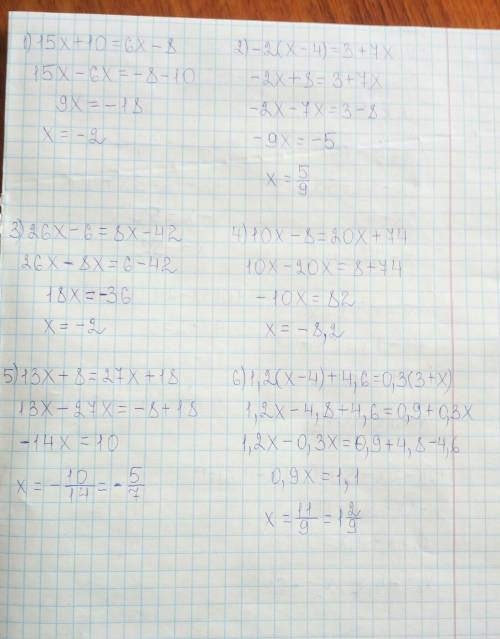 1) 15x+10=6x-8
15x-6x=-8-10
9x=-18
x=-2
2) -2(x-4)=3+7x
-2x+8=3+7x
-2x-7x=3-8
-9x=-5
x=5/9
3) 26x-6=8x-42
26x-8x=6-42
18x=-36
x=-2
4) 10x-8=20x+74
10x-20x=8+74
-10x=82
x=-8,2
5) 13x+8=27x+18
13x-27x=-8+18
-14x=10
x=-10/14=-5/7
6) 1,2(x-4)+4,6=0,3(3+x)
1,2x-4,8+4,6=0,9+0,3x
1,2x-0,3x=0,9+4,8-4,6
0,9x=1,1
x=11/9=1 2/9